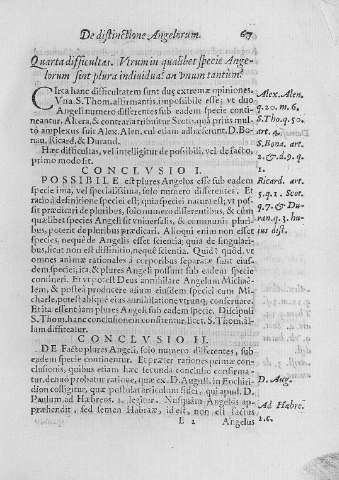 De distinctione Angelorum. 67
Quarta difficultas. Vtrum in qualibet specie Ange-
lorum sint plura indiuidua? an vnum tantum?
Circa hanc difficultatem sunt duę extremæ opiniones.
Vna S. Thom. affirmantis, impossibile esse; vt duo
Angeli numero differentes sub eadem specie conti-
neantur. Altera, & contraria tribuitur Scoto, quā prius mul-
tò amplexus fuit Alex. Alen. cui etiam adhæserunt D. Bo-
nau. Ricard. & Durand.
Hæc difficultas, vel intelligitur de possibili, vel de facto,
primo modo sit.
CONCLVSIO I.
POSSIBILE est plures Angelos esse sub eadem
specie ima, vel specialissima, solo numero differentes. Et
ratio à definitione speciei est; quia speciei natura est; vt pos-
sit prædicari de pluribus, solo numero differentibus, & cùm
quælibet species Angeli sit vniuersalis, & communis pluri-
bus, poterit de pluribus prædicari. Alioqui enim non esset
species, neque de Angelis esset scientia; quia de singulari-
bus, sicut non est diffinitio, neque scientia. Quid? quòd vt
omnes animæ rationales à corporibus separatæ sunt eius-
dem speciei, ita, & plures Angeli possunt sub eadem specie
contineri. Et vt potest Deus annihilare Angelum Michaë-
lem, & postea producere alium eiusdem speciei cum Mi-
chaële, potest absque eius annihilatione vtrunq; conseruare.
Et ita essent iam plures Angeli sub eadem specie. Discipuli
S. Thom. hanc conclusionem consitentur, licet S. Thom. il-
lam diffiteatur.
CONCLVSIO II.
DE Facto plures Angeli, solo numero differentes, sub
eadem specie continentur. Et præter rationes primæ con-
clusionis, quibus etiam hæc secunda conclusio confirma-
tur, denuo probatur ratione, quæ ex D. August. in Enchiri-
dion colligitur, quæ postulat articulum fidei, qui apud D.
Paulum ad Hæbreos 2. legitur. Nusquam Angelos ap-
præhendit, sed semen Habraæ, id est, non est factus
E 2 Angelus
Alex. Alen.
q. 20. m. 6.
S. Tho. q. 50.
art. 4.
S. Bona. art.
2. & d. 9. q.
1.
Ricard. art.
5. q. 1. Scot.
q. 7. & Du-
ran. q. 3. hu-
ius dist.
D. Aug.
Ad Hæbre.
2. 6.